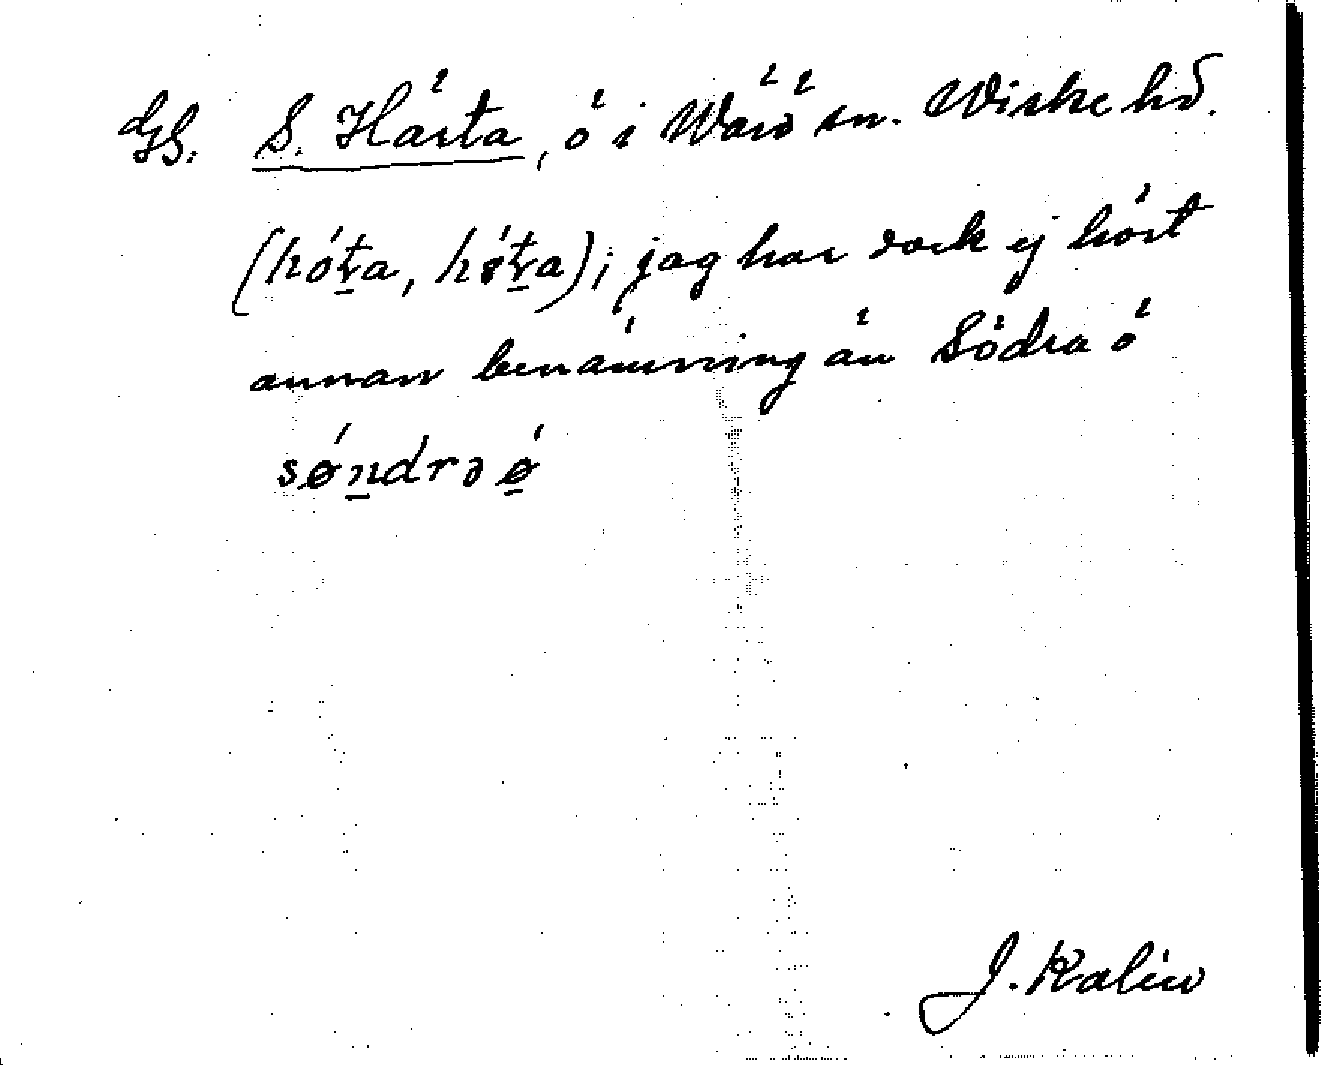 GS. S. Hästa, ö i Wärö sn. Wiske hd.
(hóṯa, hǿṯa); jag har dock ej hört
annan benämning än Södra ö
sǿṉdrə ǿ̱
J. Kalén